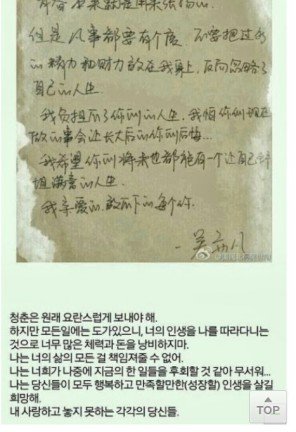 青春本来就是用来张扬的
但是凡事都要有个度 不要把过多
的精力和财力放在我身上,反而忽略了
自己的人生
我负担不了你们的人生。我怕你们现在
做的事会让长大后的你们后悔…
我希望你们将来也都能有一个让自己
满意的人生
我亲爱的,放不下的每个你.
-吴亦凡
청춘은 원래 요란스럽게 보내야 해.
하지만 모든일에는 도가있으니, 너의 인생을 나를 따라다니는
것으로 너무 많은 체력과 돈을 낭비하지마.
나는 너의 삶의 모든 걸 책임져줄 수 없어.
나는 너희가 나중에 지금의 한 일들을 후회할 것 같아 무서워...
나는 당신들이 모두 행복하고 만족할만한(성장할) 인생을 살길
희망해.
내 사랑하고 놓지 못하는 각각의 당신들.
TOP